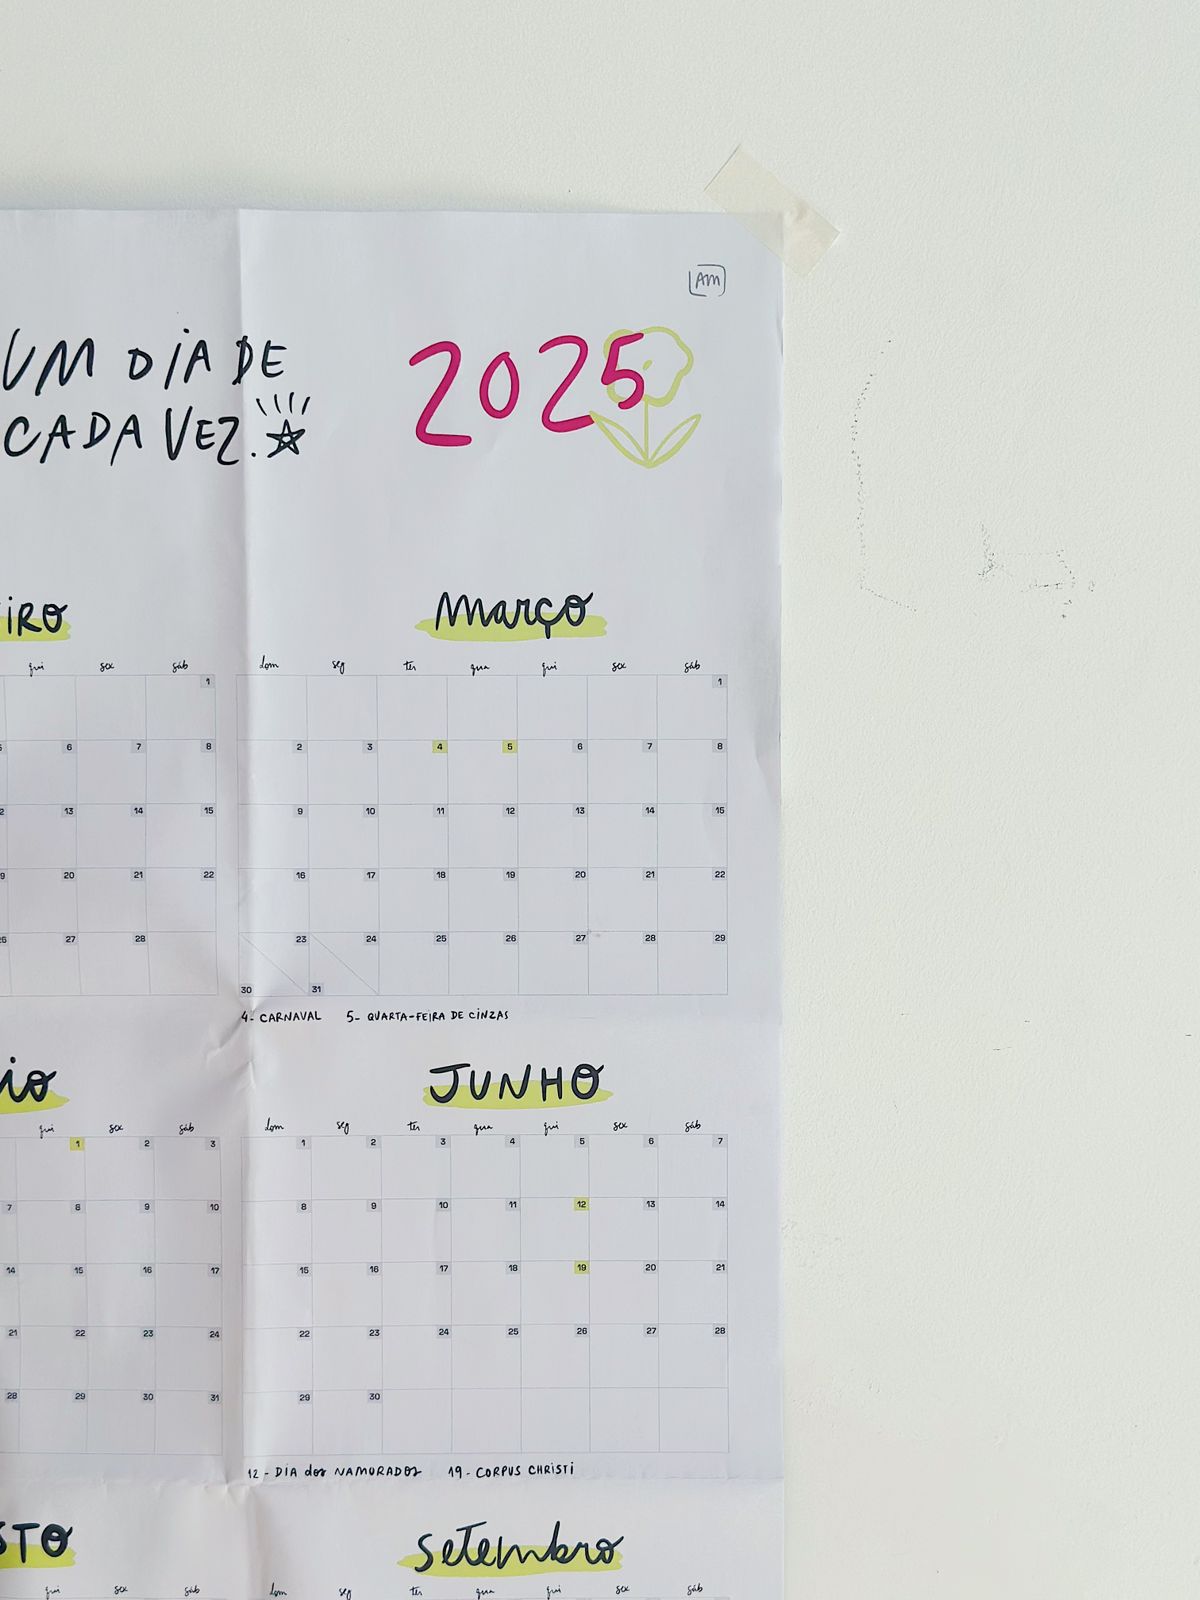 AM
UM DIA DE
CADA VEZ.
2025
março
qui sex sáb
1
6 7 8
13 14 15
20 21 22
27 28
dom seg ter qua qui sex sáb
1
2 3 4 5 6 7 8
9 10 11 12 13 14 15
16 17 18 19 20 21 22
23 24 25 26 27 28 29
30 31
4- CARNAVAL 5- QUARTA-FEIRA DE CINZAS
JUNHO
qui sex sáb
1 2 3
7 8 9 10
14 15 16 17
21 22 23 24
28 29 30 31
dom seg ter qua qui sex sáb
1 2 3 4 5 6 7
8 9 10 11 12 13 14
15 16 17 18 19 20 21
22 23 24 25 26 27 28
29 30
12 - DIA dos NAMORADOS 19 - CORPUS CHRISTI
setembro
qui sex sáb
dom seg ter qua qui sex sáb